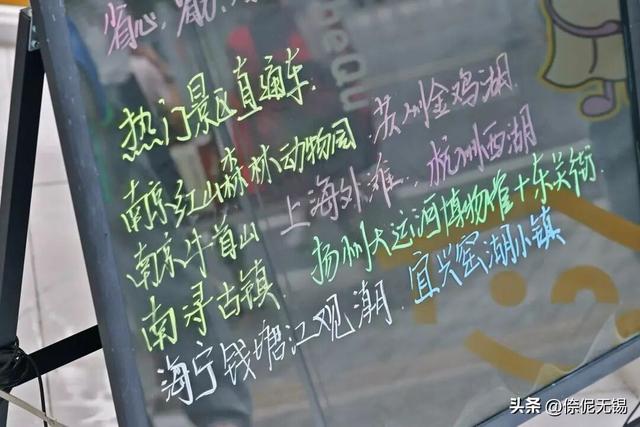 省心、省力、
热门景区直通车
南京红山森林动物园、苏州金鸡湖
南京牛首山 上海外滩、杭州西湖
南寻古镇、扬州大运河博物馆+东关街
海宁钱塘江观潮、宜兴窑湖小镇
头条 @倷伲无锡